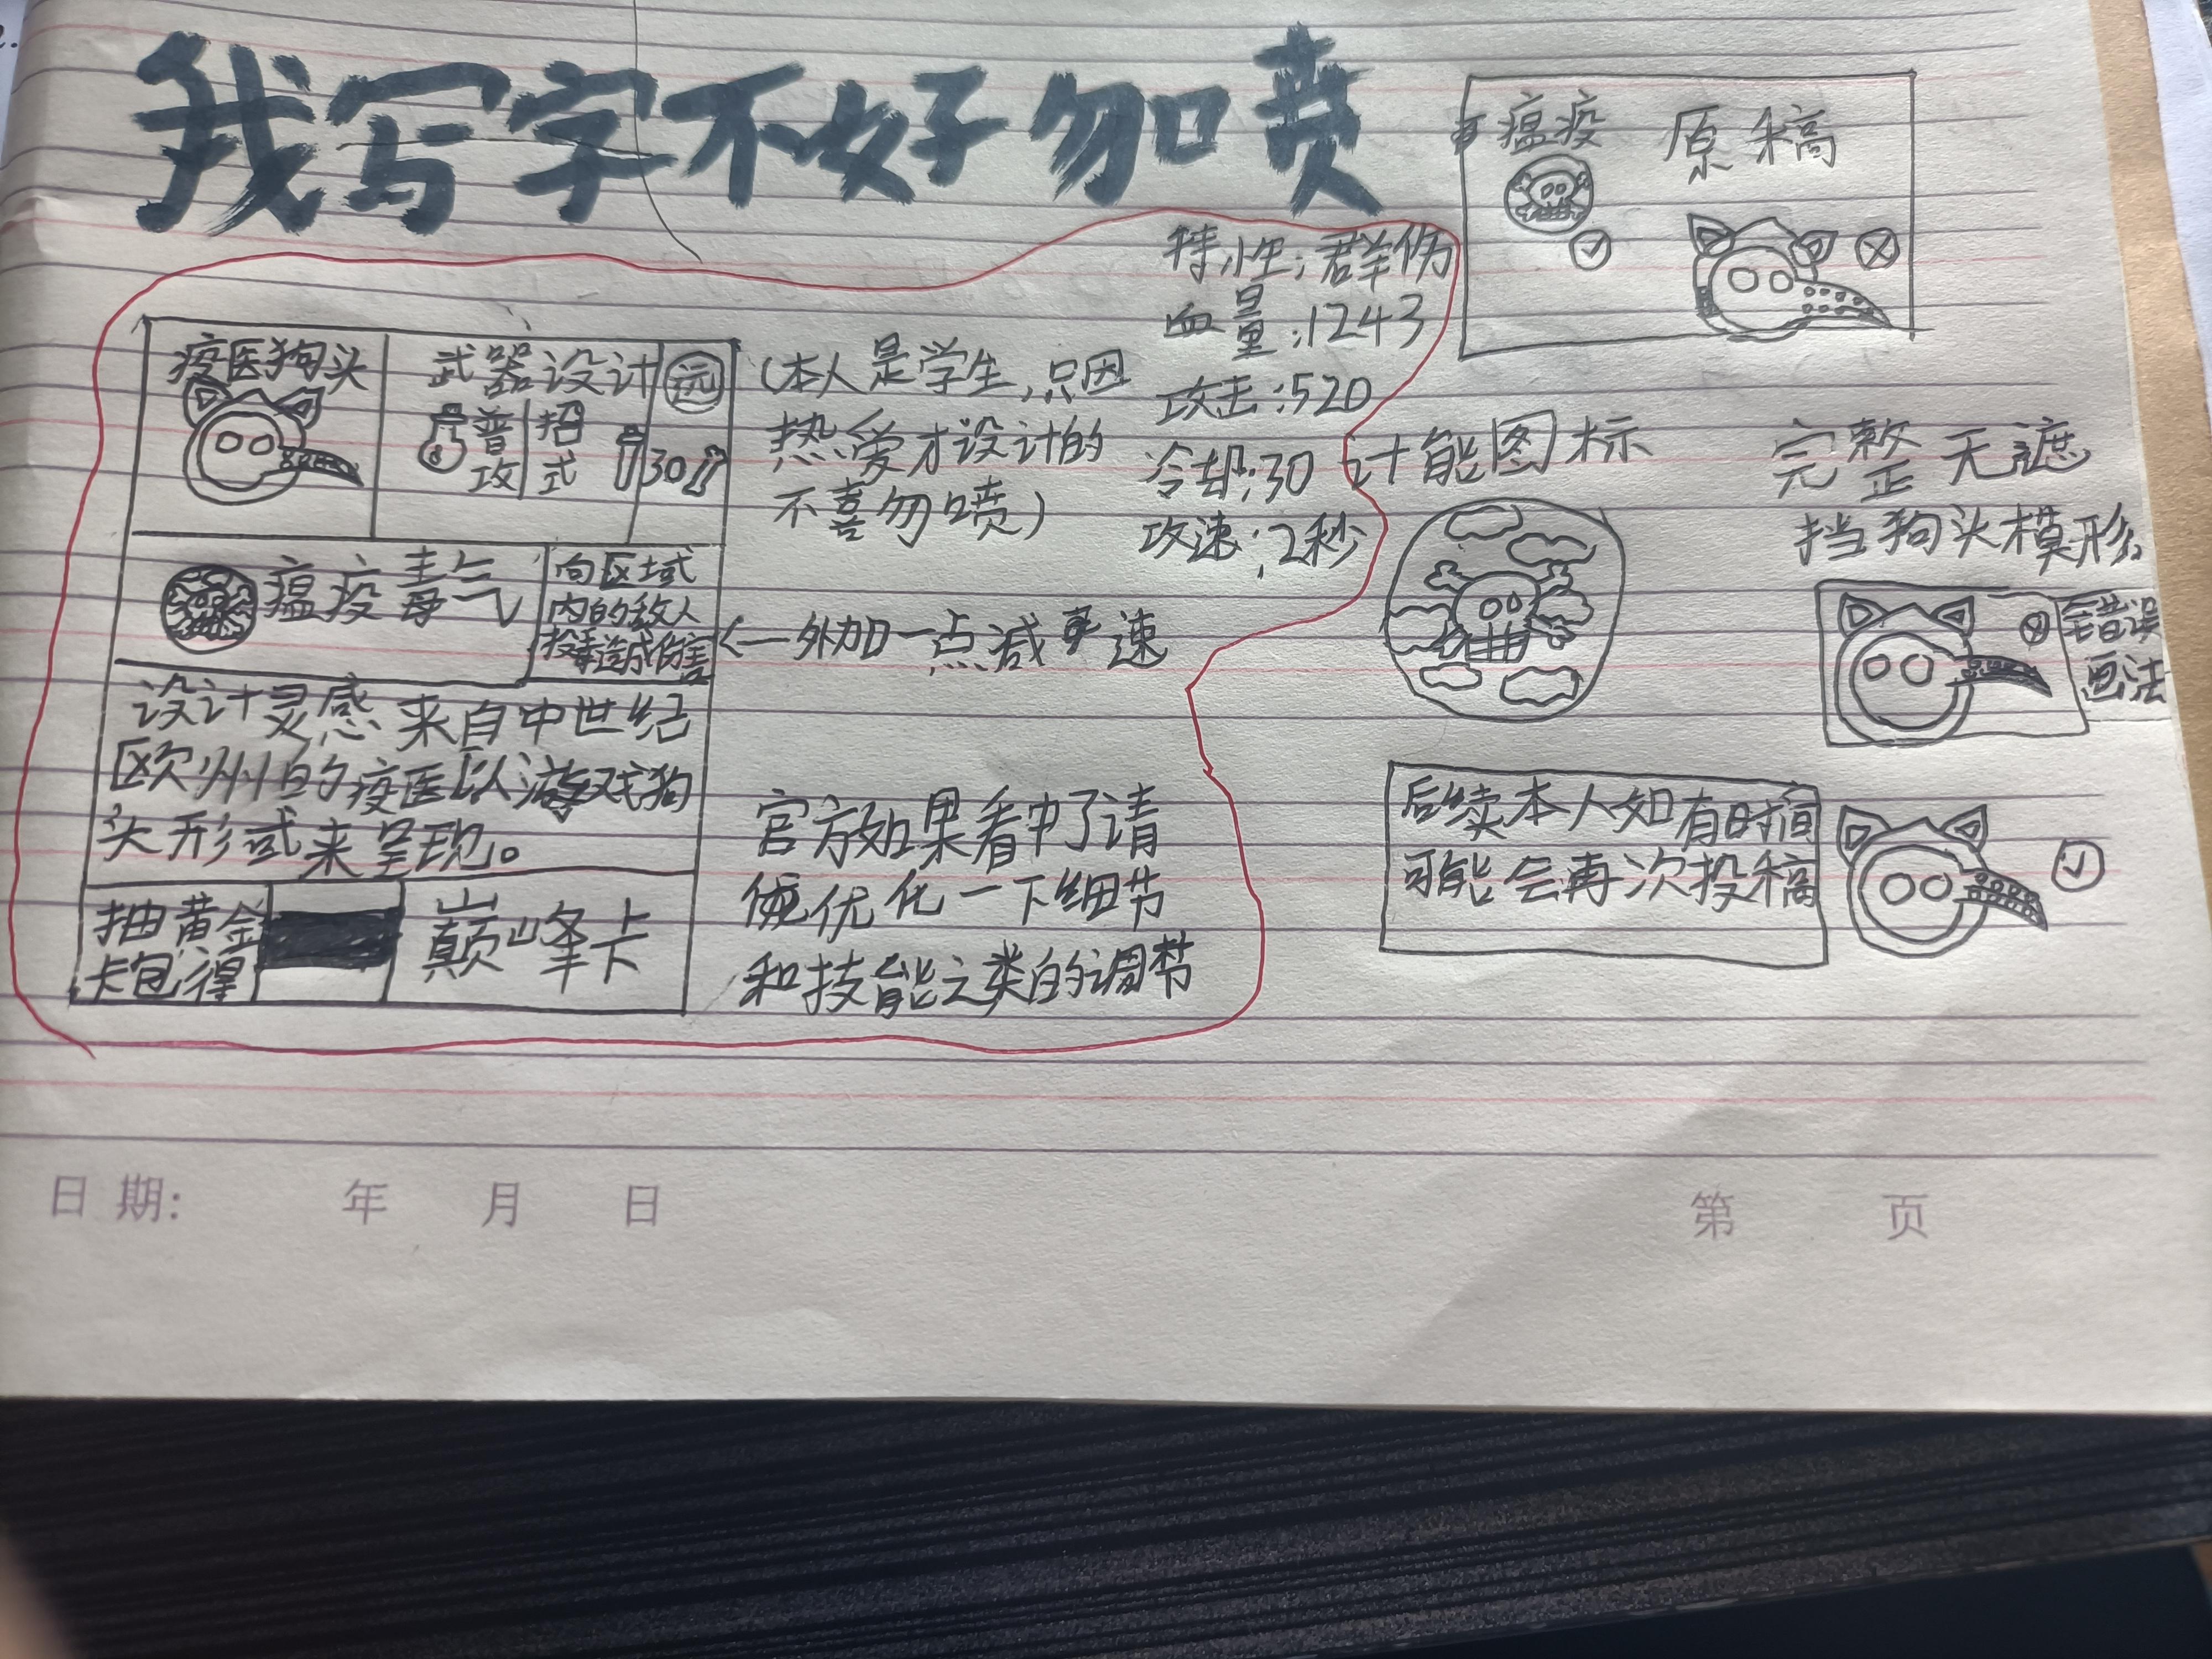 我写字不好勿加喷
疫医狗头
武器设计
远
普攻
招式
30
瘟疫毒气
向区域
内的敌人
投毒造成伤害
<一外加一点减速
设计灵感来自中世纪
欧州的疫医以游戏狗
头形式来呈现。
抽黄金
卡包得
巅峰卡
(本人是学生,只因
热爱才设计的
不喜勿喷)
特性:群伤
血量:1243
攻击:520
冷却:30
攻速:2秒
官方如果看中了请
优化一下细节
和技能之类的调节
瘟疫 原稿
计能图标
完整无遮
挡狗头模形
错误
画法
后续本人如有时间
可能会再次投稿
日期: 年 月 日
第 页